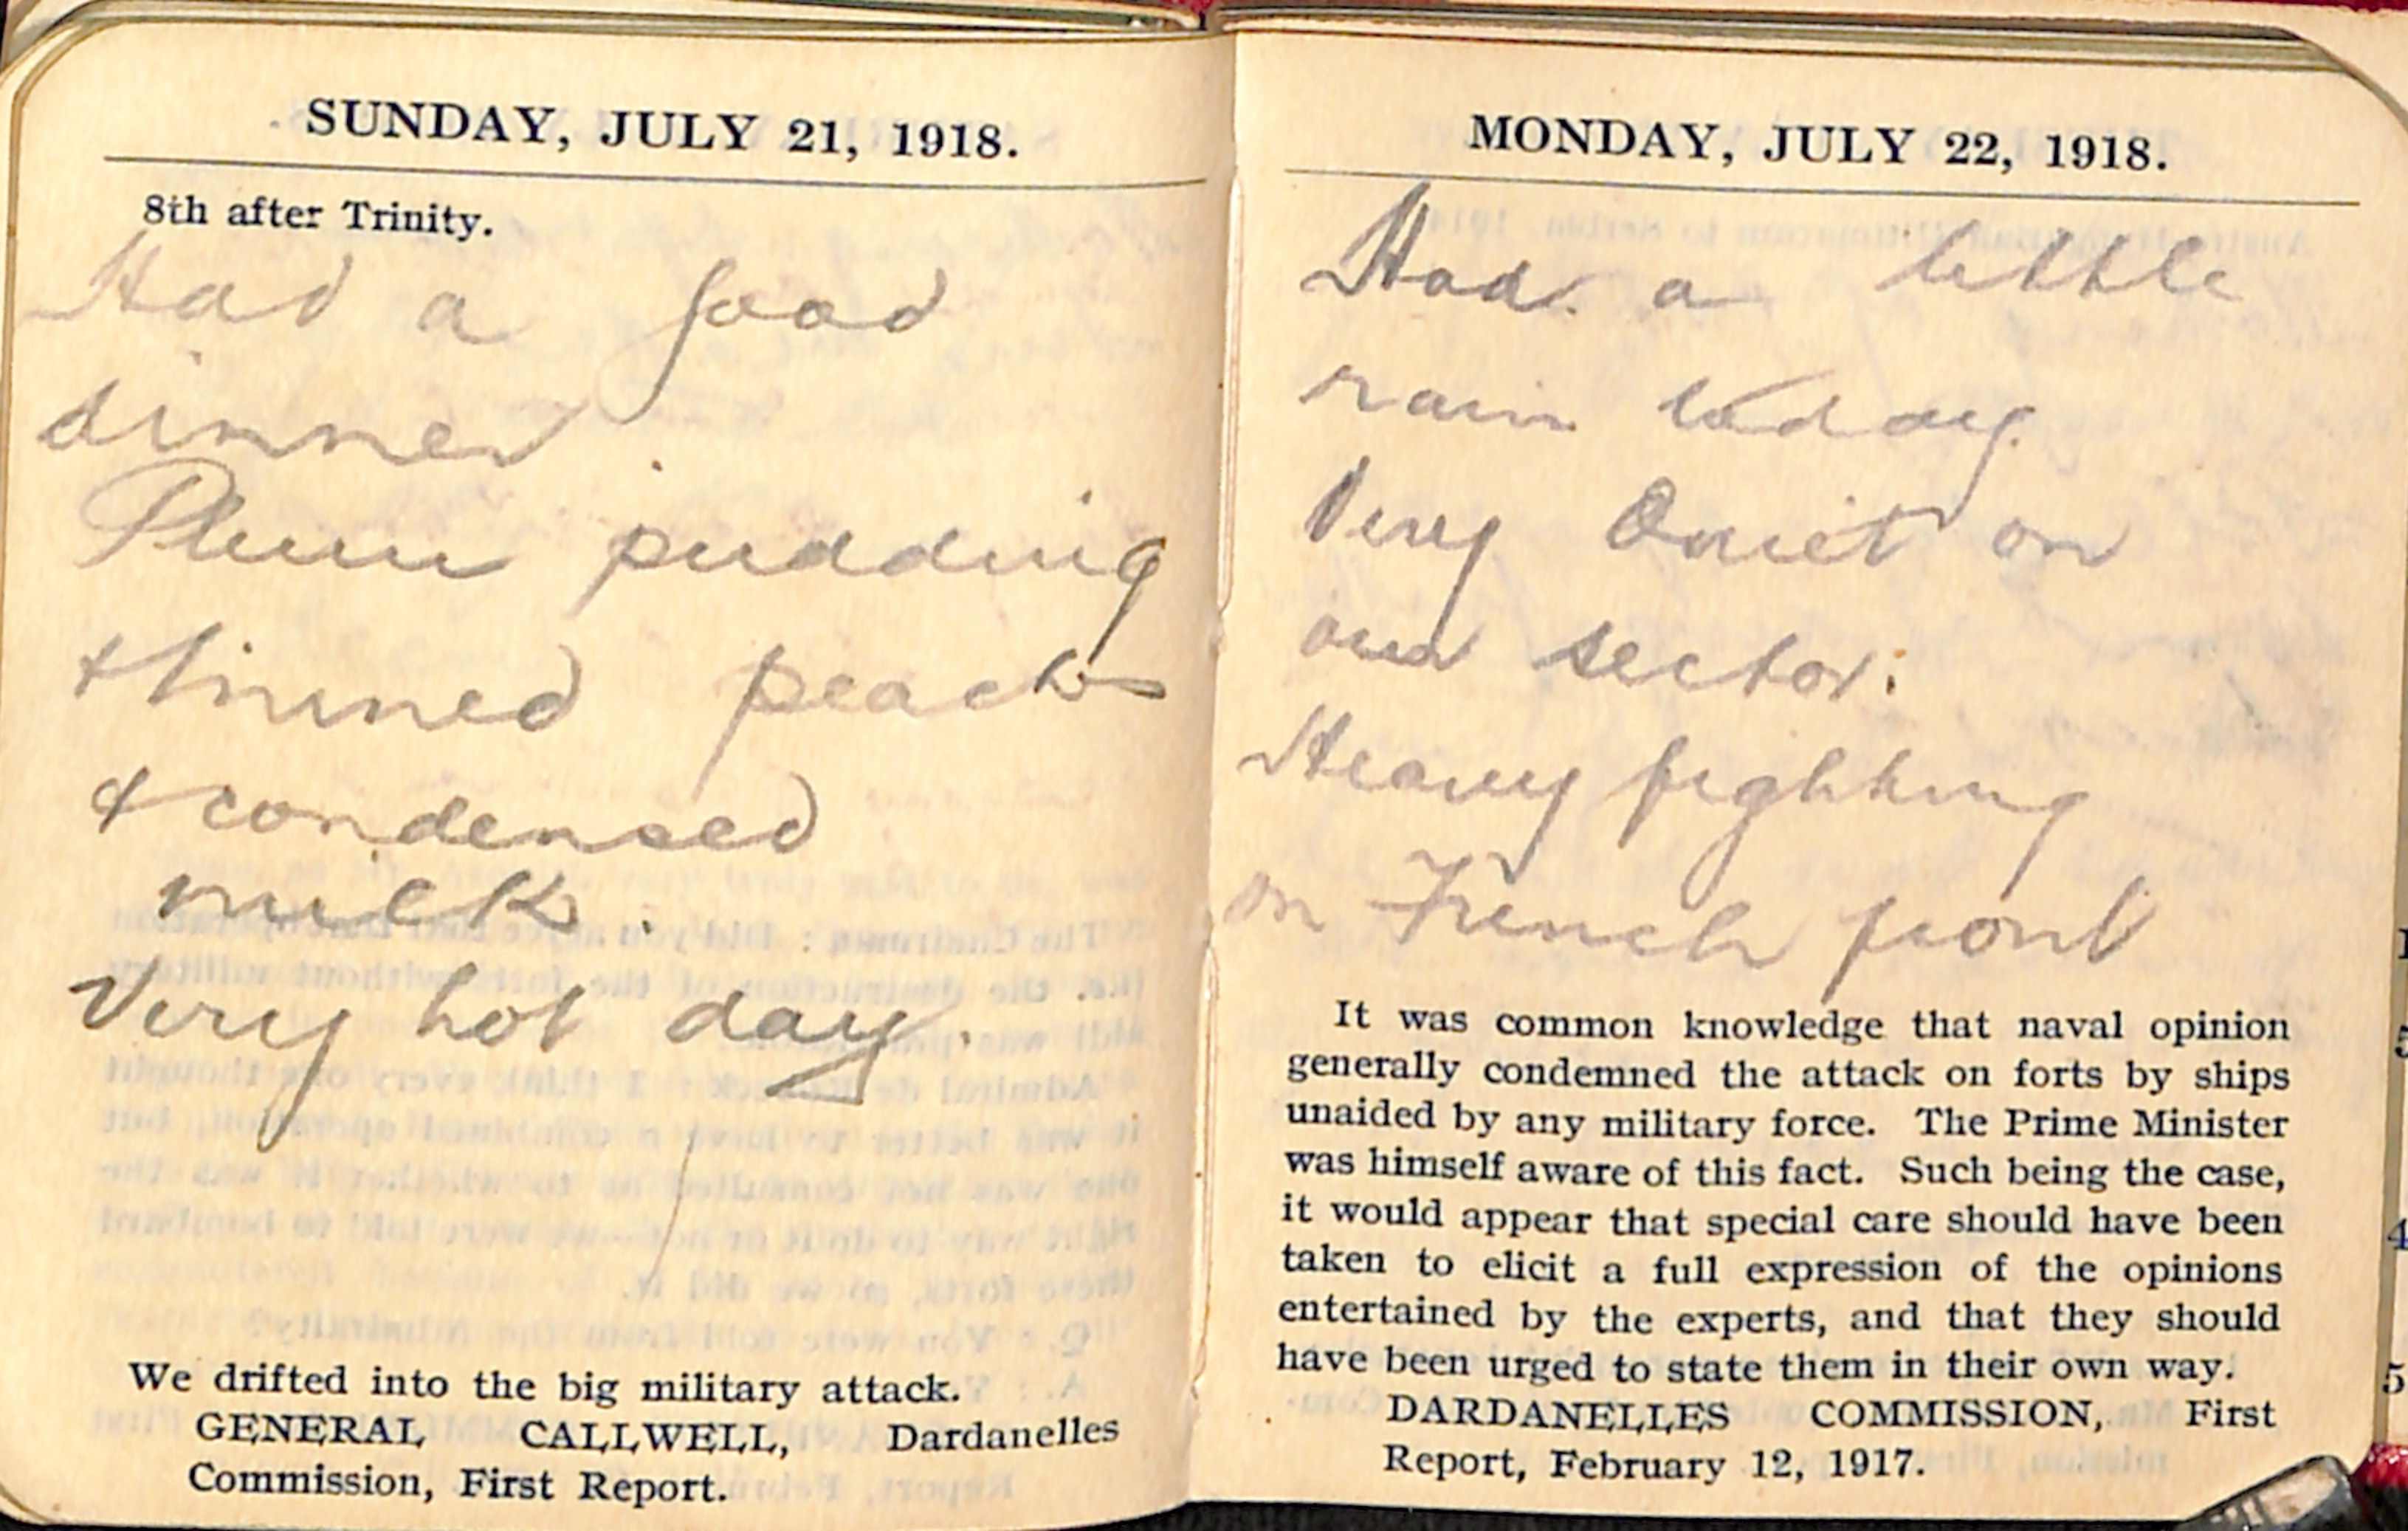 SUNDAY, JULY 21, 1918.
8th after Trinity.
Had a good
dinner.
Plum pudding
& tinned peachs
& condensed
milk.
Very hot day.
We drifted into the big military attack.
GENERAL CALLWELL, Dardanelles
Commission, First Report.
MONDAY, JULY 22, 1918.
Had a little
rain today.
Very Quiet on
our sector.
Heavy fighting
on French front
It was common knowledge that naval opinion
generally condemned the attack on forts by ships
unaided by any military force. The Prime Minister
was himself aware of this fact. Such being the case,
it would appear that special care should have been
taken to elicit a full expression of the opinions
entertained by the experts, and that they should
have been urged to state them in their own way.
DARDANELLES COMMISSION, First
Report, February 12, 1917.